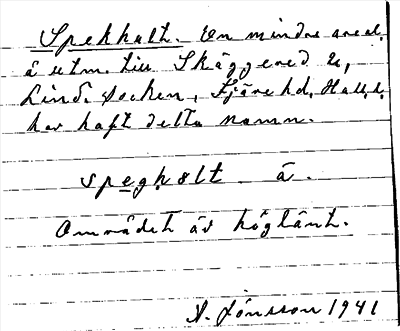 Spekhult. En mindre areal.
å utm. till Skäggered 2,
Lind. Socken, Fjäre hd. Hall. l.
har haft detta namn.
speghult å.
Området är höglänt.
A. Jönsson 1941